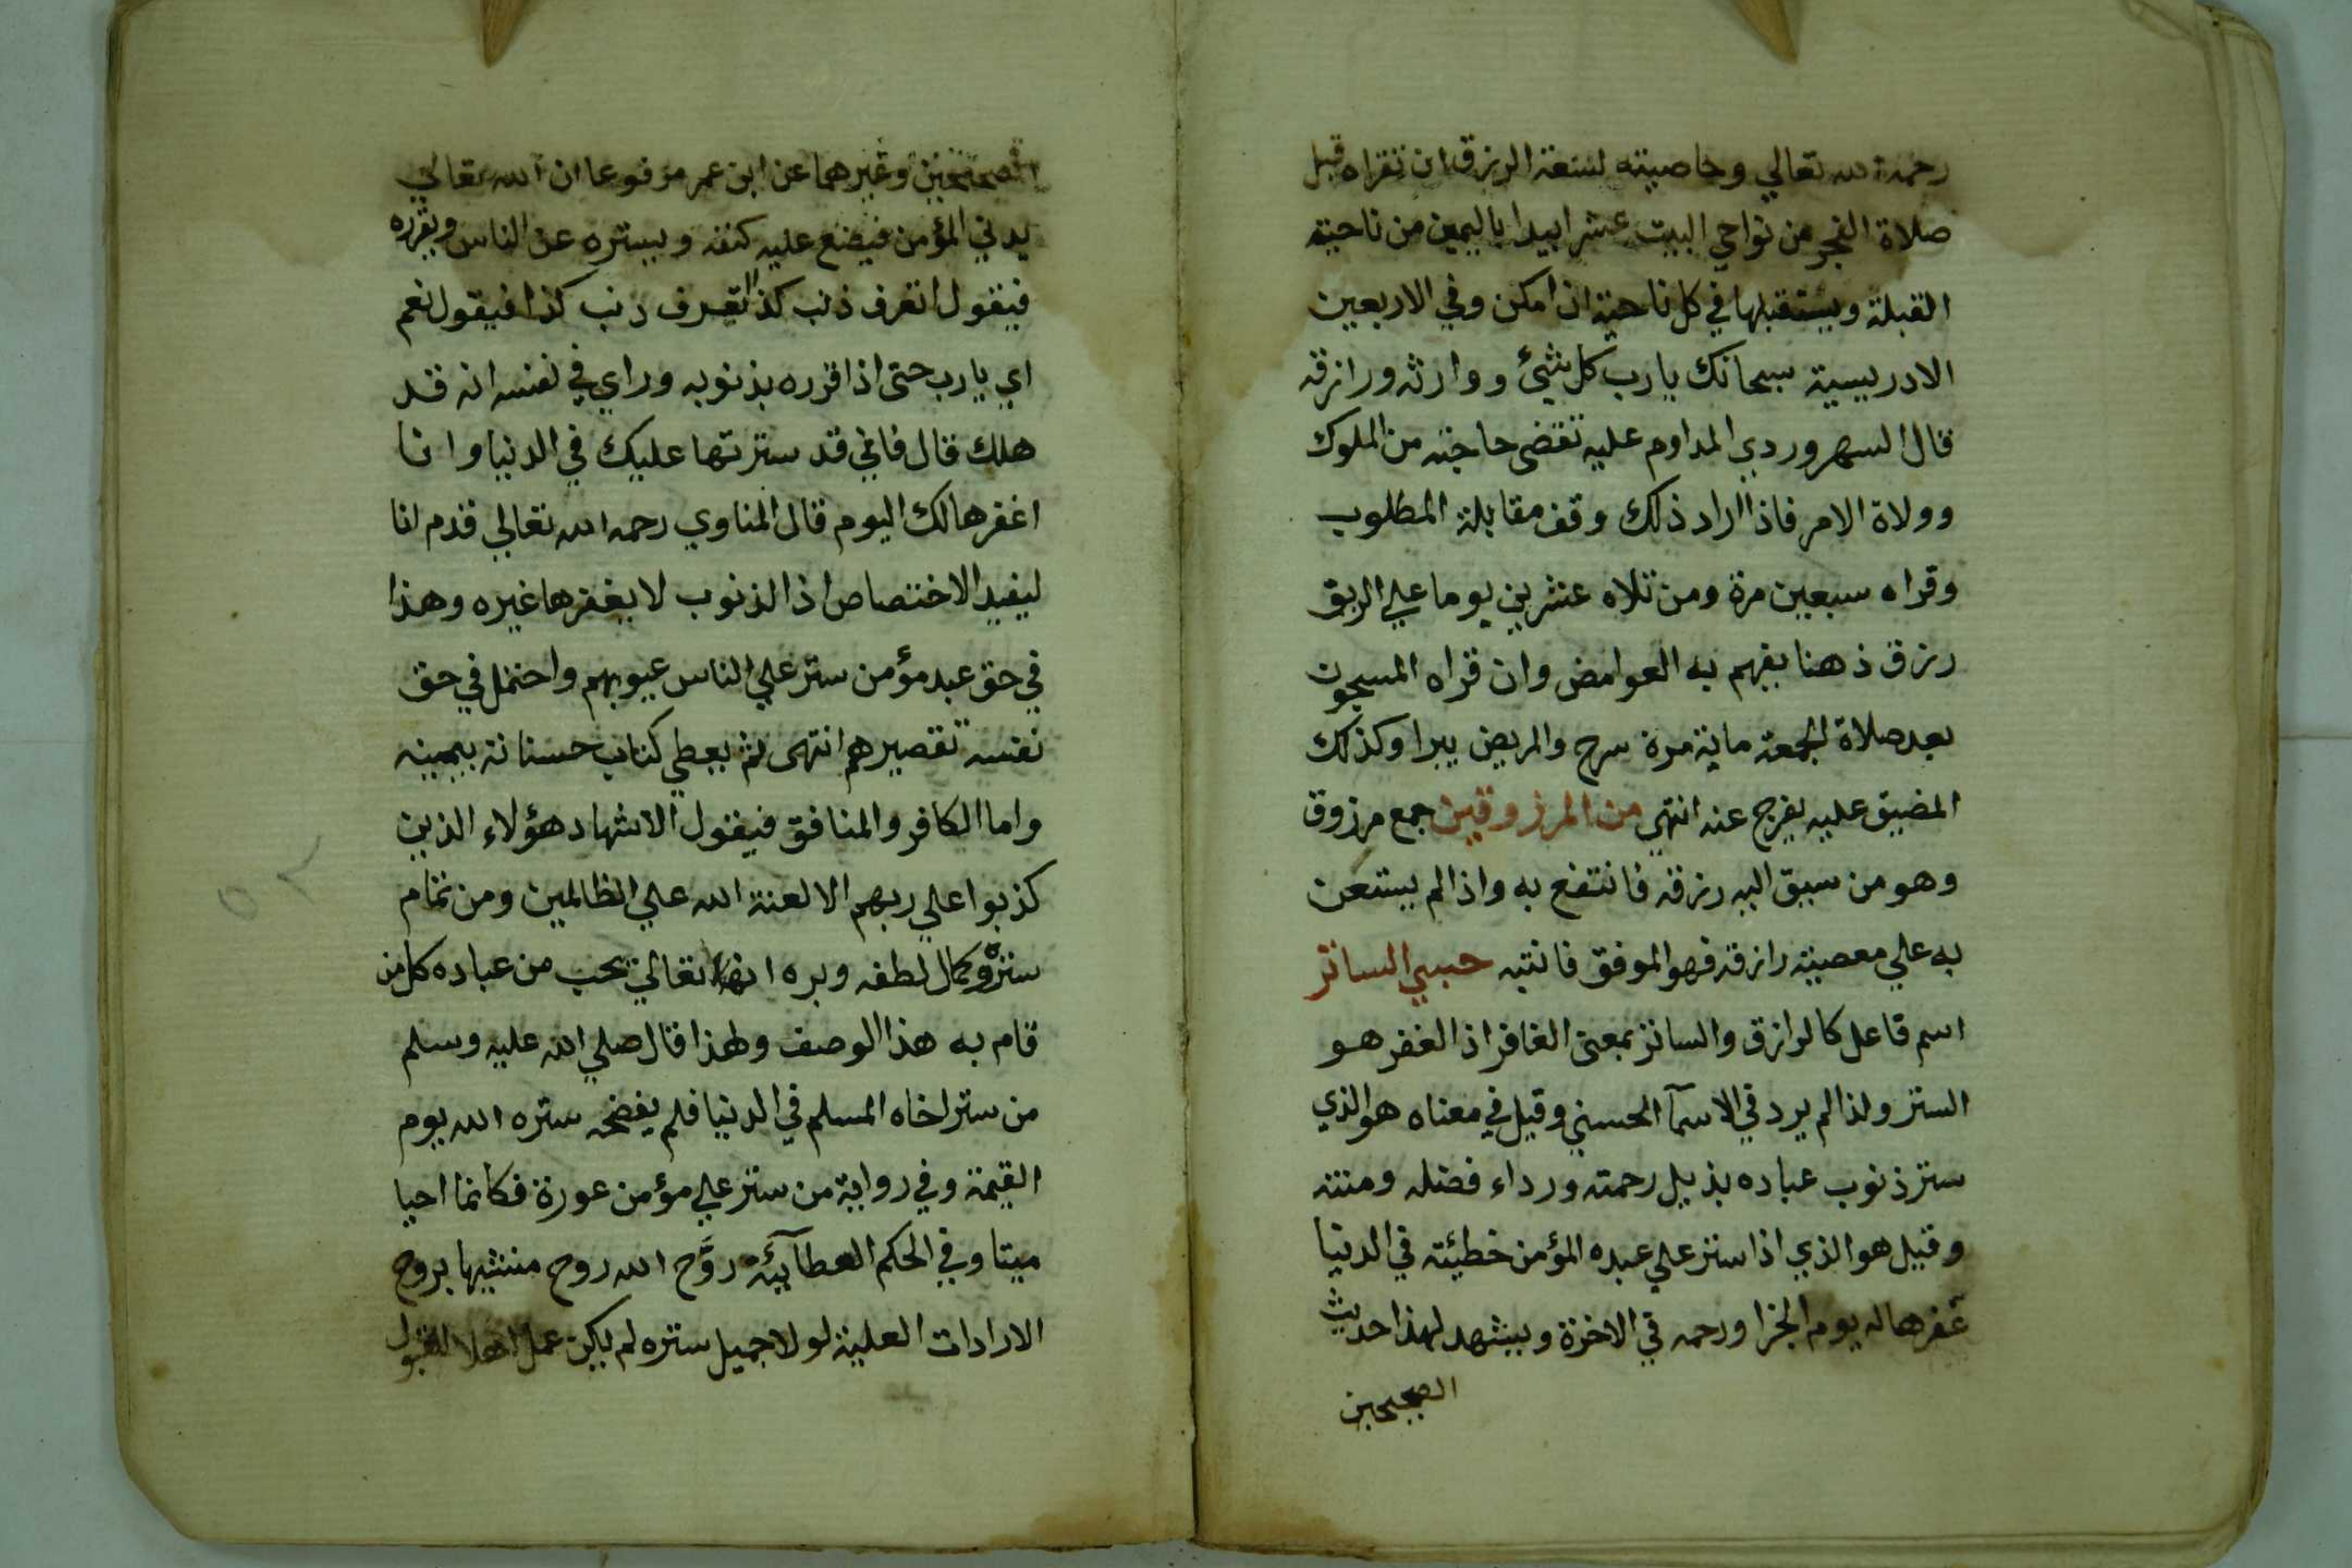 رحمه الله تعالي وخاصيته لسعة الرزق ان تقراه قبل
صلاة الفجر من نواحي البيت عشرا يبدا باليمين من ناحية
القبلة ويستقبلها في كل ناحية ان امكن وفي الاربعين
الادريسية سبحانك يارب كل شيئ ووارثه ورازقه
قال السهروردي المداوم عليه تقضى حاجته من الملوك
وولاة الامر فاذا اراد ذلك وقف مقابلة المطلوب
وقراه سبعين مرة ومن تلاه عشرين يوما علي الريق
رزق ذهنا يفهم به العوامض وان قراه المسجون
بعد صلاة الجمعة ماية مرة سرح والمريض يبرا وكذلك
المضيق عليه يفرج عنه انتهي من المرزوقين جمع مرزوق
وهو من سيق اليه رزقه فانتفع به واذا لم يستعن
به علي معصية رازقه فهو الموفق فانتبه حسبي الساتر
اسم فاعل كالرازق والساتر بمعنى الغافر اذ الغفر هو
الستر ولذا لم يرد في الاسمآ الحسني وقيل في معناه هو الذي
ستر ذنوب عباده بذيل رحمته ورداء فضله ومنته
وقيل هو الذي اذا ستر علي عبده المؤمن خطيئته في الدنيا
غفرها له يوم الجزا ورحمه في الاخرة ويشهد لهذا حديث
الصحيحين
الصحيحين وغيرهما عن ابن عمر مرفوعا ان الله تعالي
يدني المؤمن فيضع عليه كنفه ويستره عن الناس ويقرره
فيقول اتعرف ذنب كذا اتعرف ذنب كذا فيقول نعم
اي يارب حتى اذا قرره بذنوبه وراي في نفسه انه قد
هلك قال فاني قد سترتها عليك في الدنيا وانا
اغفرها لك اليوم قال المناوي رحمه الله تعالي قدم انا
ليفيد الاختصاص اذ الذنوب لا يغفرها غيره وهذا
في حق عبد مؤمن ستر علي الناس عيوبهم واحتمل في حق
نفسه تقصيرهم انتهى ثم يعطي كتاب حسناته بيمينه
واما الكافر والمنافق فيقول الاشهاد هؤلاء الذين
كذبوا علي ربهم الا لعنة الله علي الظالمين ومن تمام
ستره وكمال لطفه وبره انه تعالي يحب من عباده كل من
قام به هذا الوصف ولهذا قال صلي الله عليه وسلم
من ستر اخاه المسلم في الدنيا فلم يفضحه ستره الله يوم
القيمة وفي رواية من ستر علي مؤمن عورة فكانما احيا
ميتا وفي الحكم العطآئية روَّح الله روح منشيها بروح
الارادات العلية لولا جميل ستره لم يكن عمل اهلا للقبول